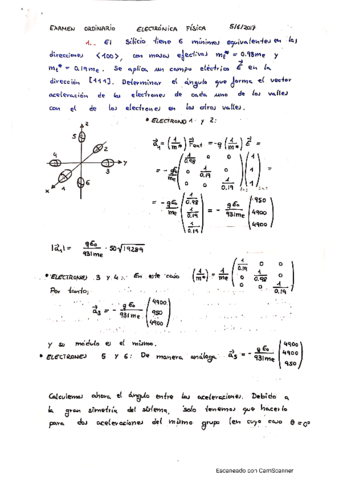 EXAMEN ORDINARIO ELECTRÓNICA FÍSICA 5/6/2017
1.. El Silicio tiene 6 mínimos equivalentes en las
direcciones <100>, con masas efectivas ml* = 0.98me y
mt* = 0.19me. Se aplica un campo eléctrico E en la
dirección [111]. Determinar el ángulo que forma el vector
aceleración de los electrones de cada uno de los valles
con el de los electrones en los otros valles.
• ELECTRONES 1 y 2:
z
5
4
3
y
2
1
x
6
a₁ = (1/m*) F_ext = -q (1/m*) E =
= - qE₀/me (1/0.98 0 0; 0 1/0.19 0; 0 0 1/0.19) (1; 1; 1) =
= - qE₀/me (1/0.98; 1/0.19; 1/0.19) = - qE₀/931me (950; 4900; 4900)
|a₁| = qE₀/931me · 50√19289
• ELECTRONES 3 y 4: En este caso (1/m*) = (1/0.19 0 0; 0 1/0.98 0; 0 0 1/0.19)
Por tanto;
a₃ = - qE₀/931me (4900; 950; 4900)
y su módulo es el mismo.
• ELECTRONES 5 y 6: De manera análoga: a₅ = - qE₀/931me (4900; 4900; 950)
Calculemos ahora el ángulo entre las aceleraciones. Debido a
la gran simetría del sistema, solo tenemos que hacerlo
para dos aceleraciones del mismo grupo (en cuyo caso θ=0º
Escaneado con CamScanner